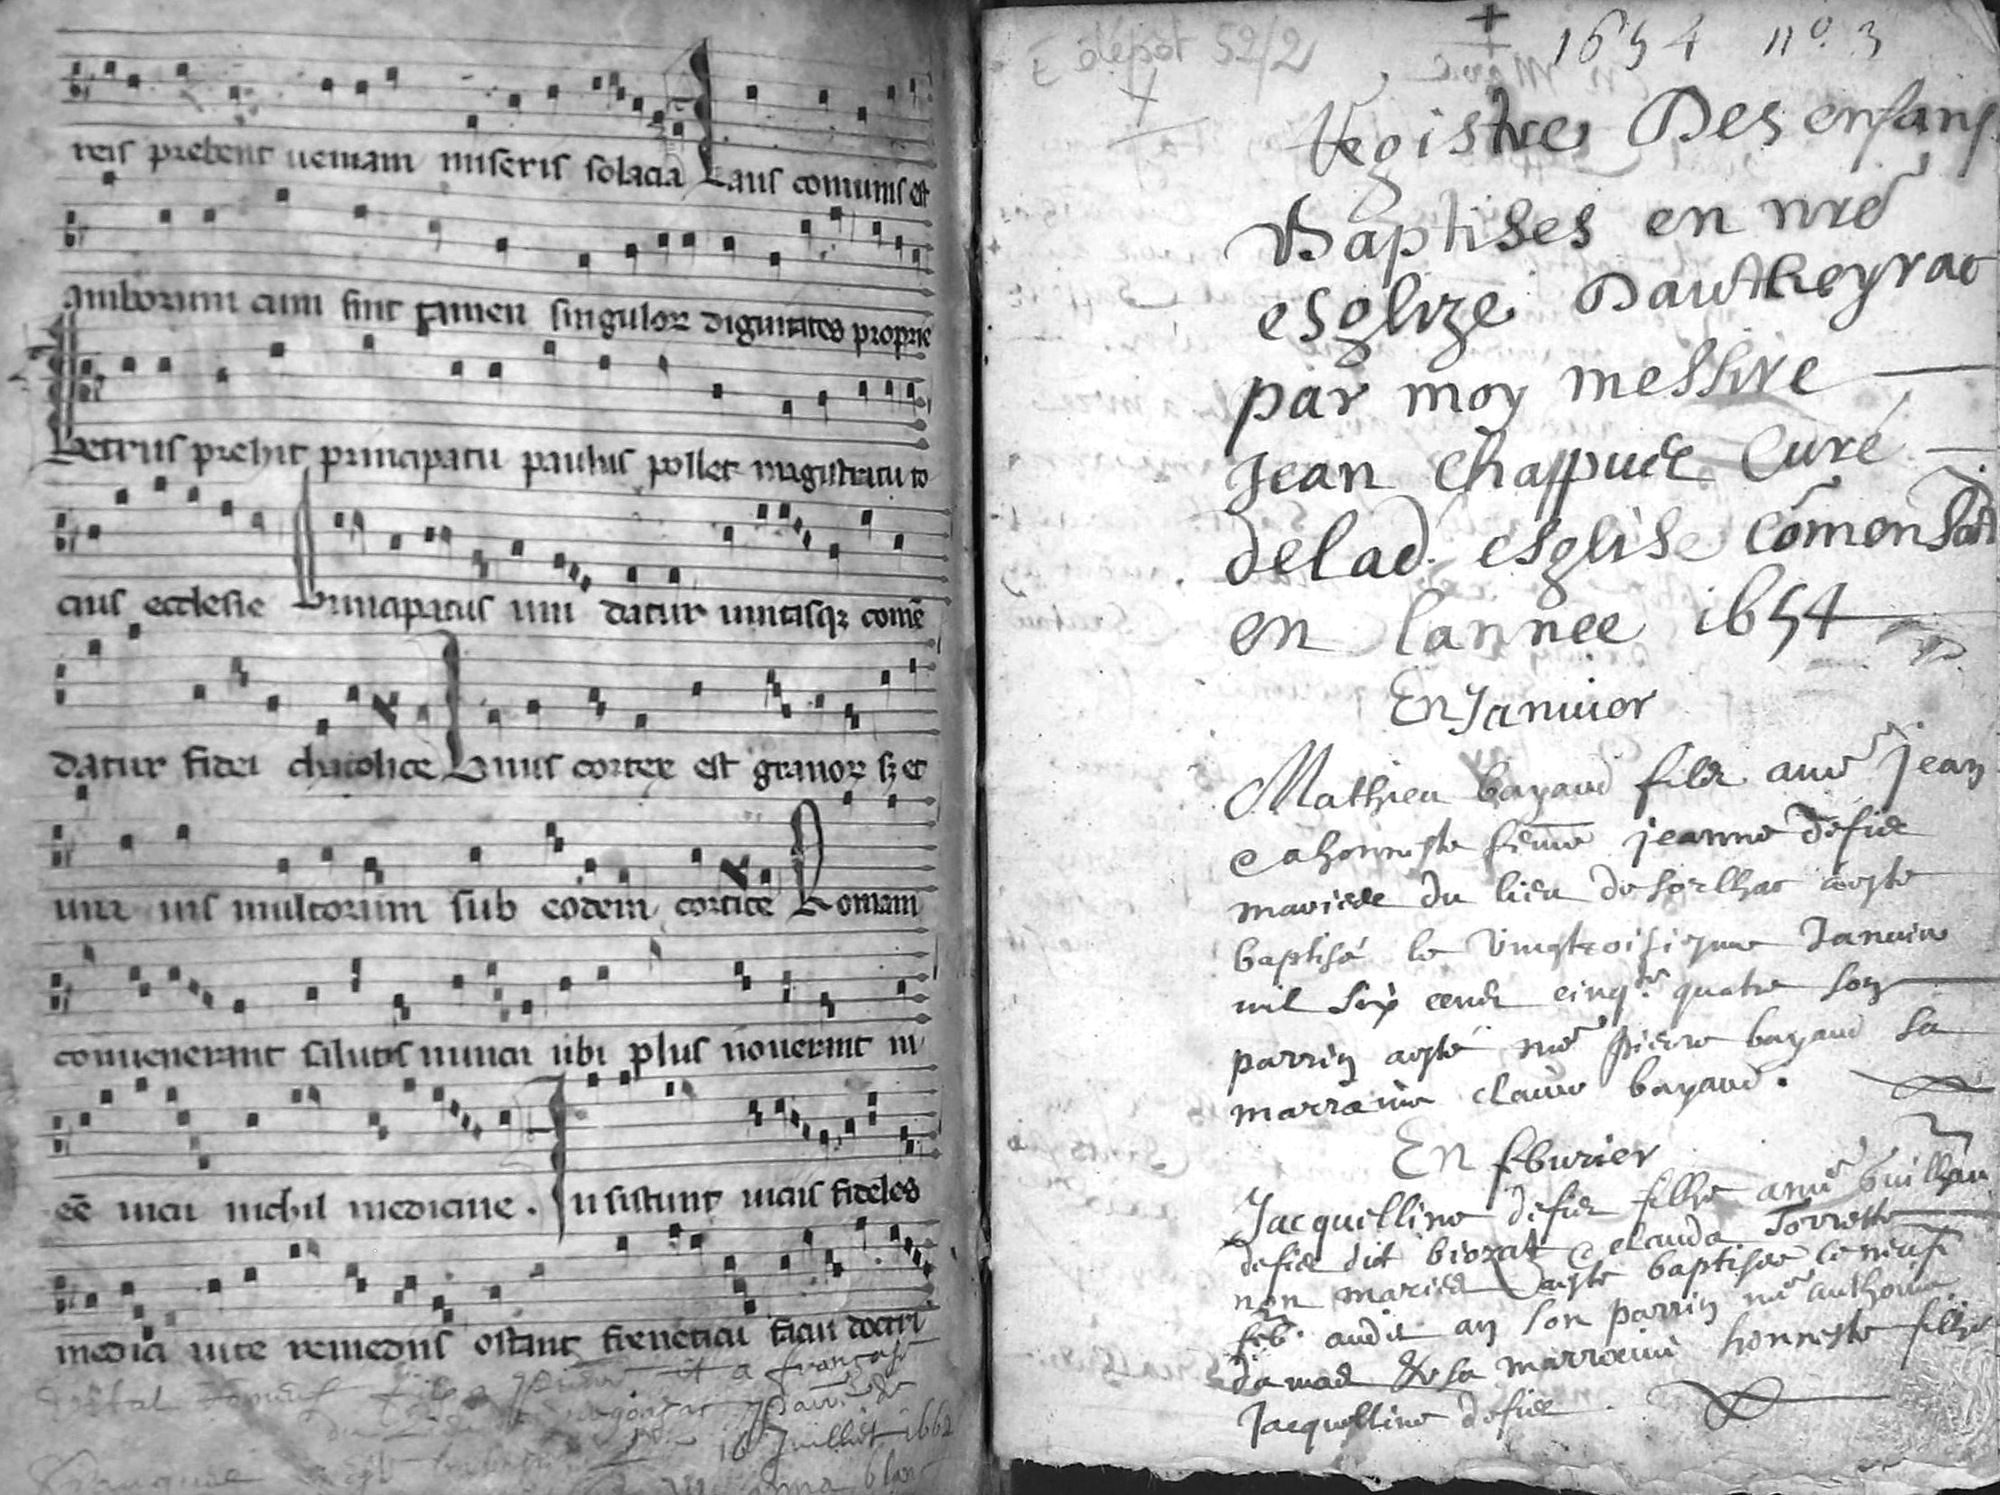 reis prebent ueniam miseris solacia Laus comunis est
amborum cum sint tamen singulor dignitates proprie
Petrus prehit principatu paulus pollet magistratu to
cius ecclesie Principatus uni datur unitasqz comē
datur fidei chatolice Unus cortex est granor sz et
una uis multorum sub eodem cortice Romam
conuenerant salutis nuncii ubi plus nouerant in
eē uicii nichil medicine. Insistunt uiciis fideles
medici uite remediis obstant frenetici facti doctri
16 Juillet 1662
E dépôt 52/2
1654 no. 3
Registre Des enfans
Baptises en nrē
esglize Dautheyrac
par moy messire
Jean Chappuis Curé
delad. esglise cōmensant
en lannee 1654
En Januier
Mathieu bayaud filz a me jean
& a honneste feme jeanne defix
mariede du lieu de aeste
baptisé le Vingtroisiesme Januier
mil six cents cinqte quatre son
parrin aesté me pierre bayaud sa
marraine claude bayaud.
En feburier
Jacquelline defix filhe a me Guilhau
defix dit & clauda Torrette
non maries aeste baptisee le neuf
feb. audit an son parrin me anthoine
damad & sa marraine honneste filhe
Jacquelline defix.